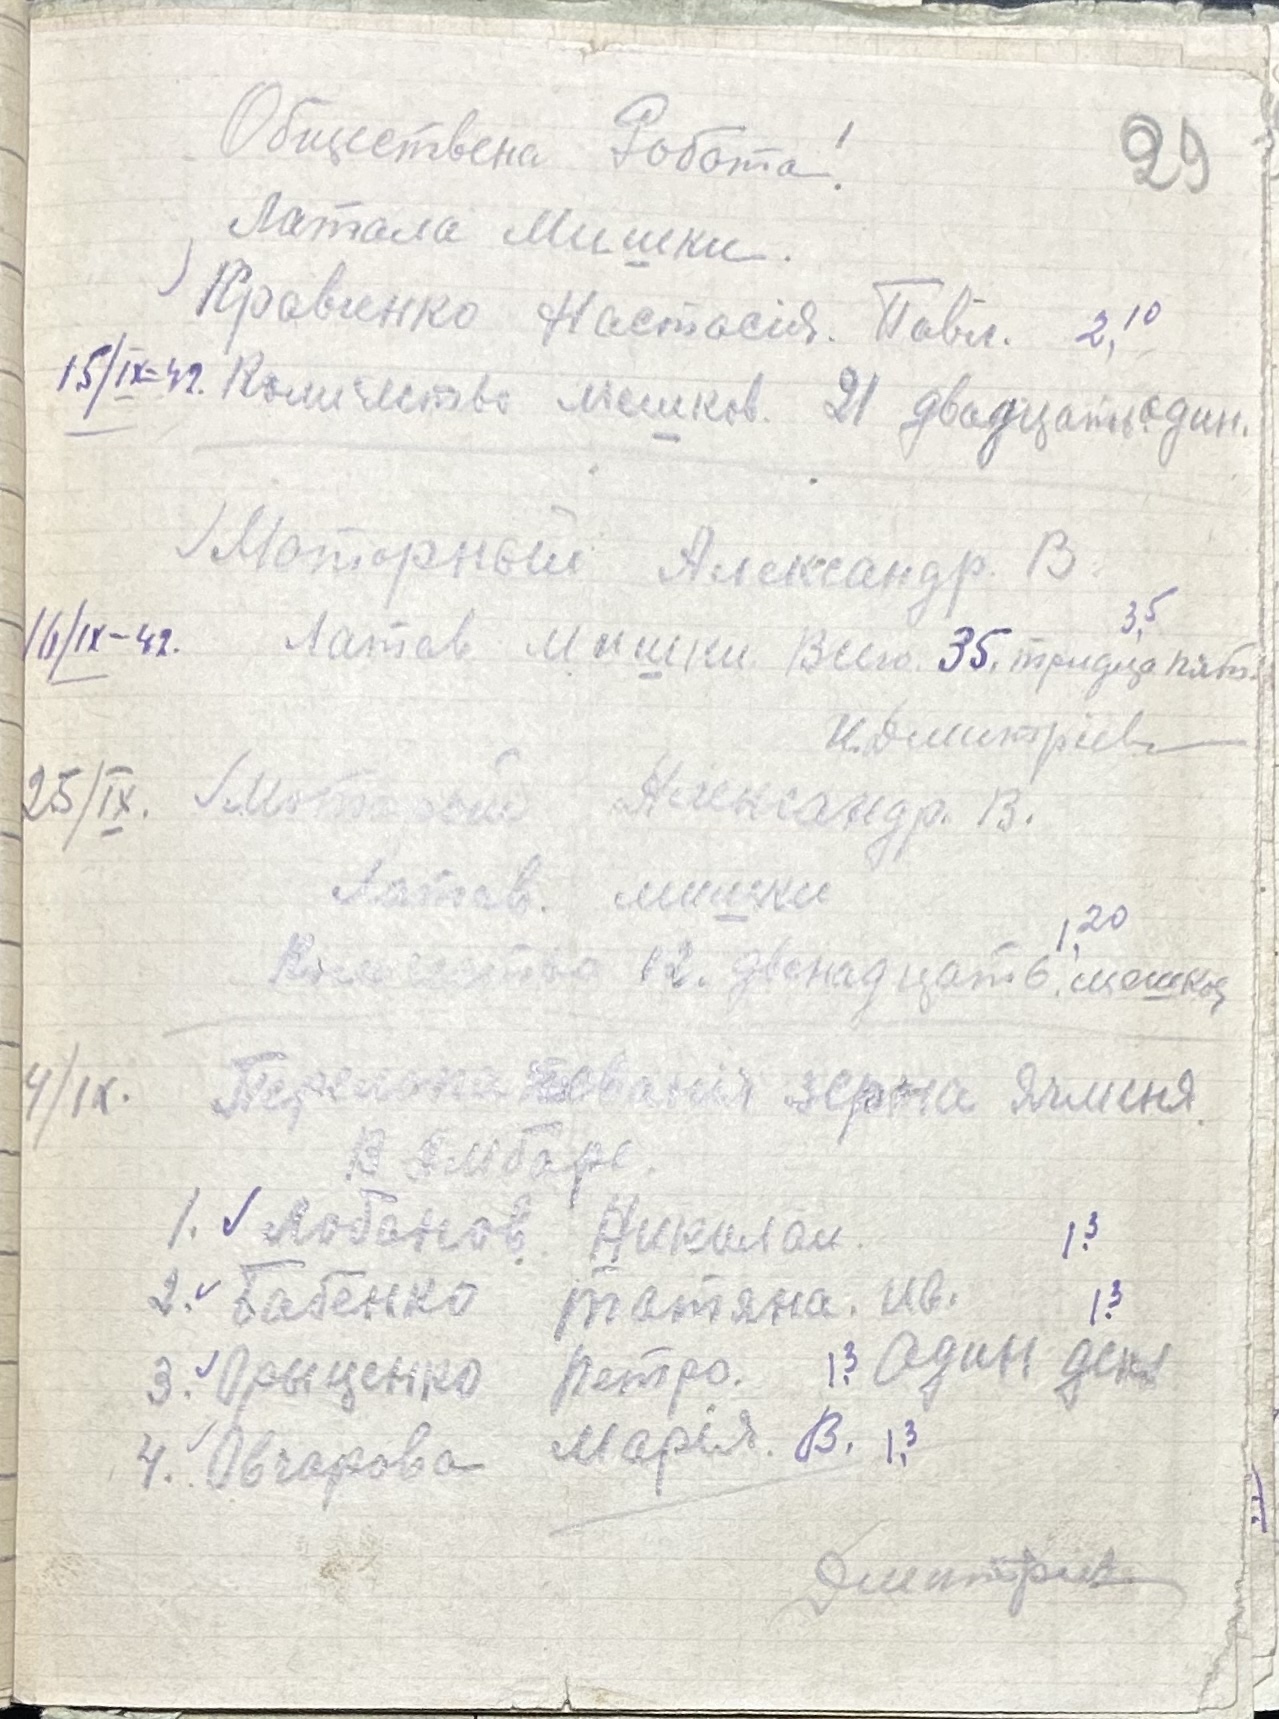 Обществена Робота!
29
Латала Мишки.
Кравченко Настасія. Павл. 2,10
15/IX-42. Количество мешков. 21 двадцать один.
Моторный Александр. В.
3,5
16/IX-42. Латав мишки Всего. 35. тридца пять.
И. Дмитріев
25/IX. Моторный Александр. В.
Латав. мишки
1,20
Количество 12. двенадцать. мешков
4/IX. зерна Ячменя.
В Амбаре.
1. Лобанов Николай. 1,3
2. Бабенко Татяна. Ив. 1,3
3. Орыщенко Петро. 1,3 Один день
4. Овчарова Марія. В. 1,3
Дмитріев